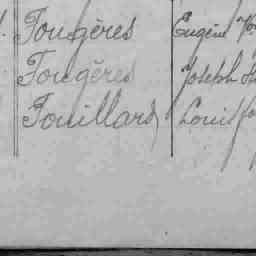 Fougères Eugène
Fougères Joseph
Fouillard Louis